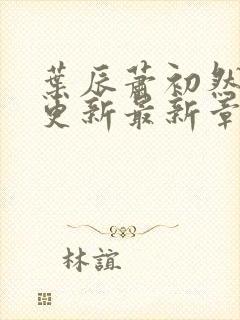 葉辰蕭初然
更新最新章
林誼